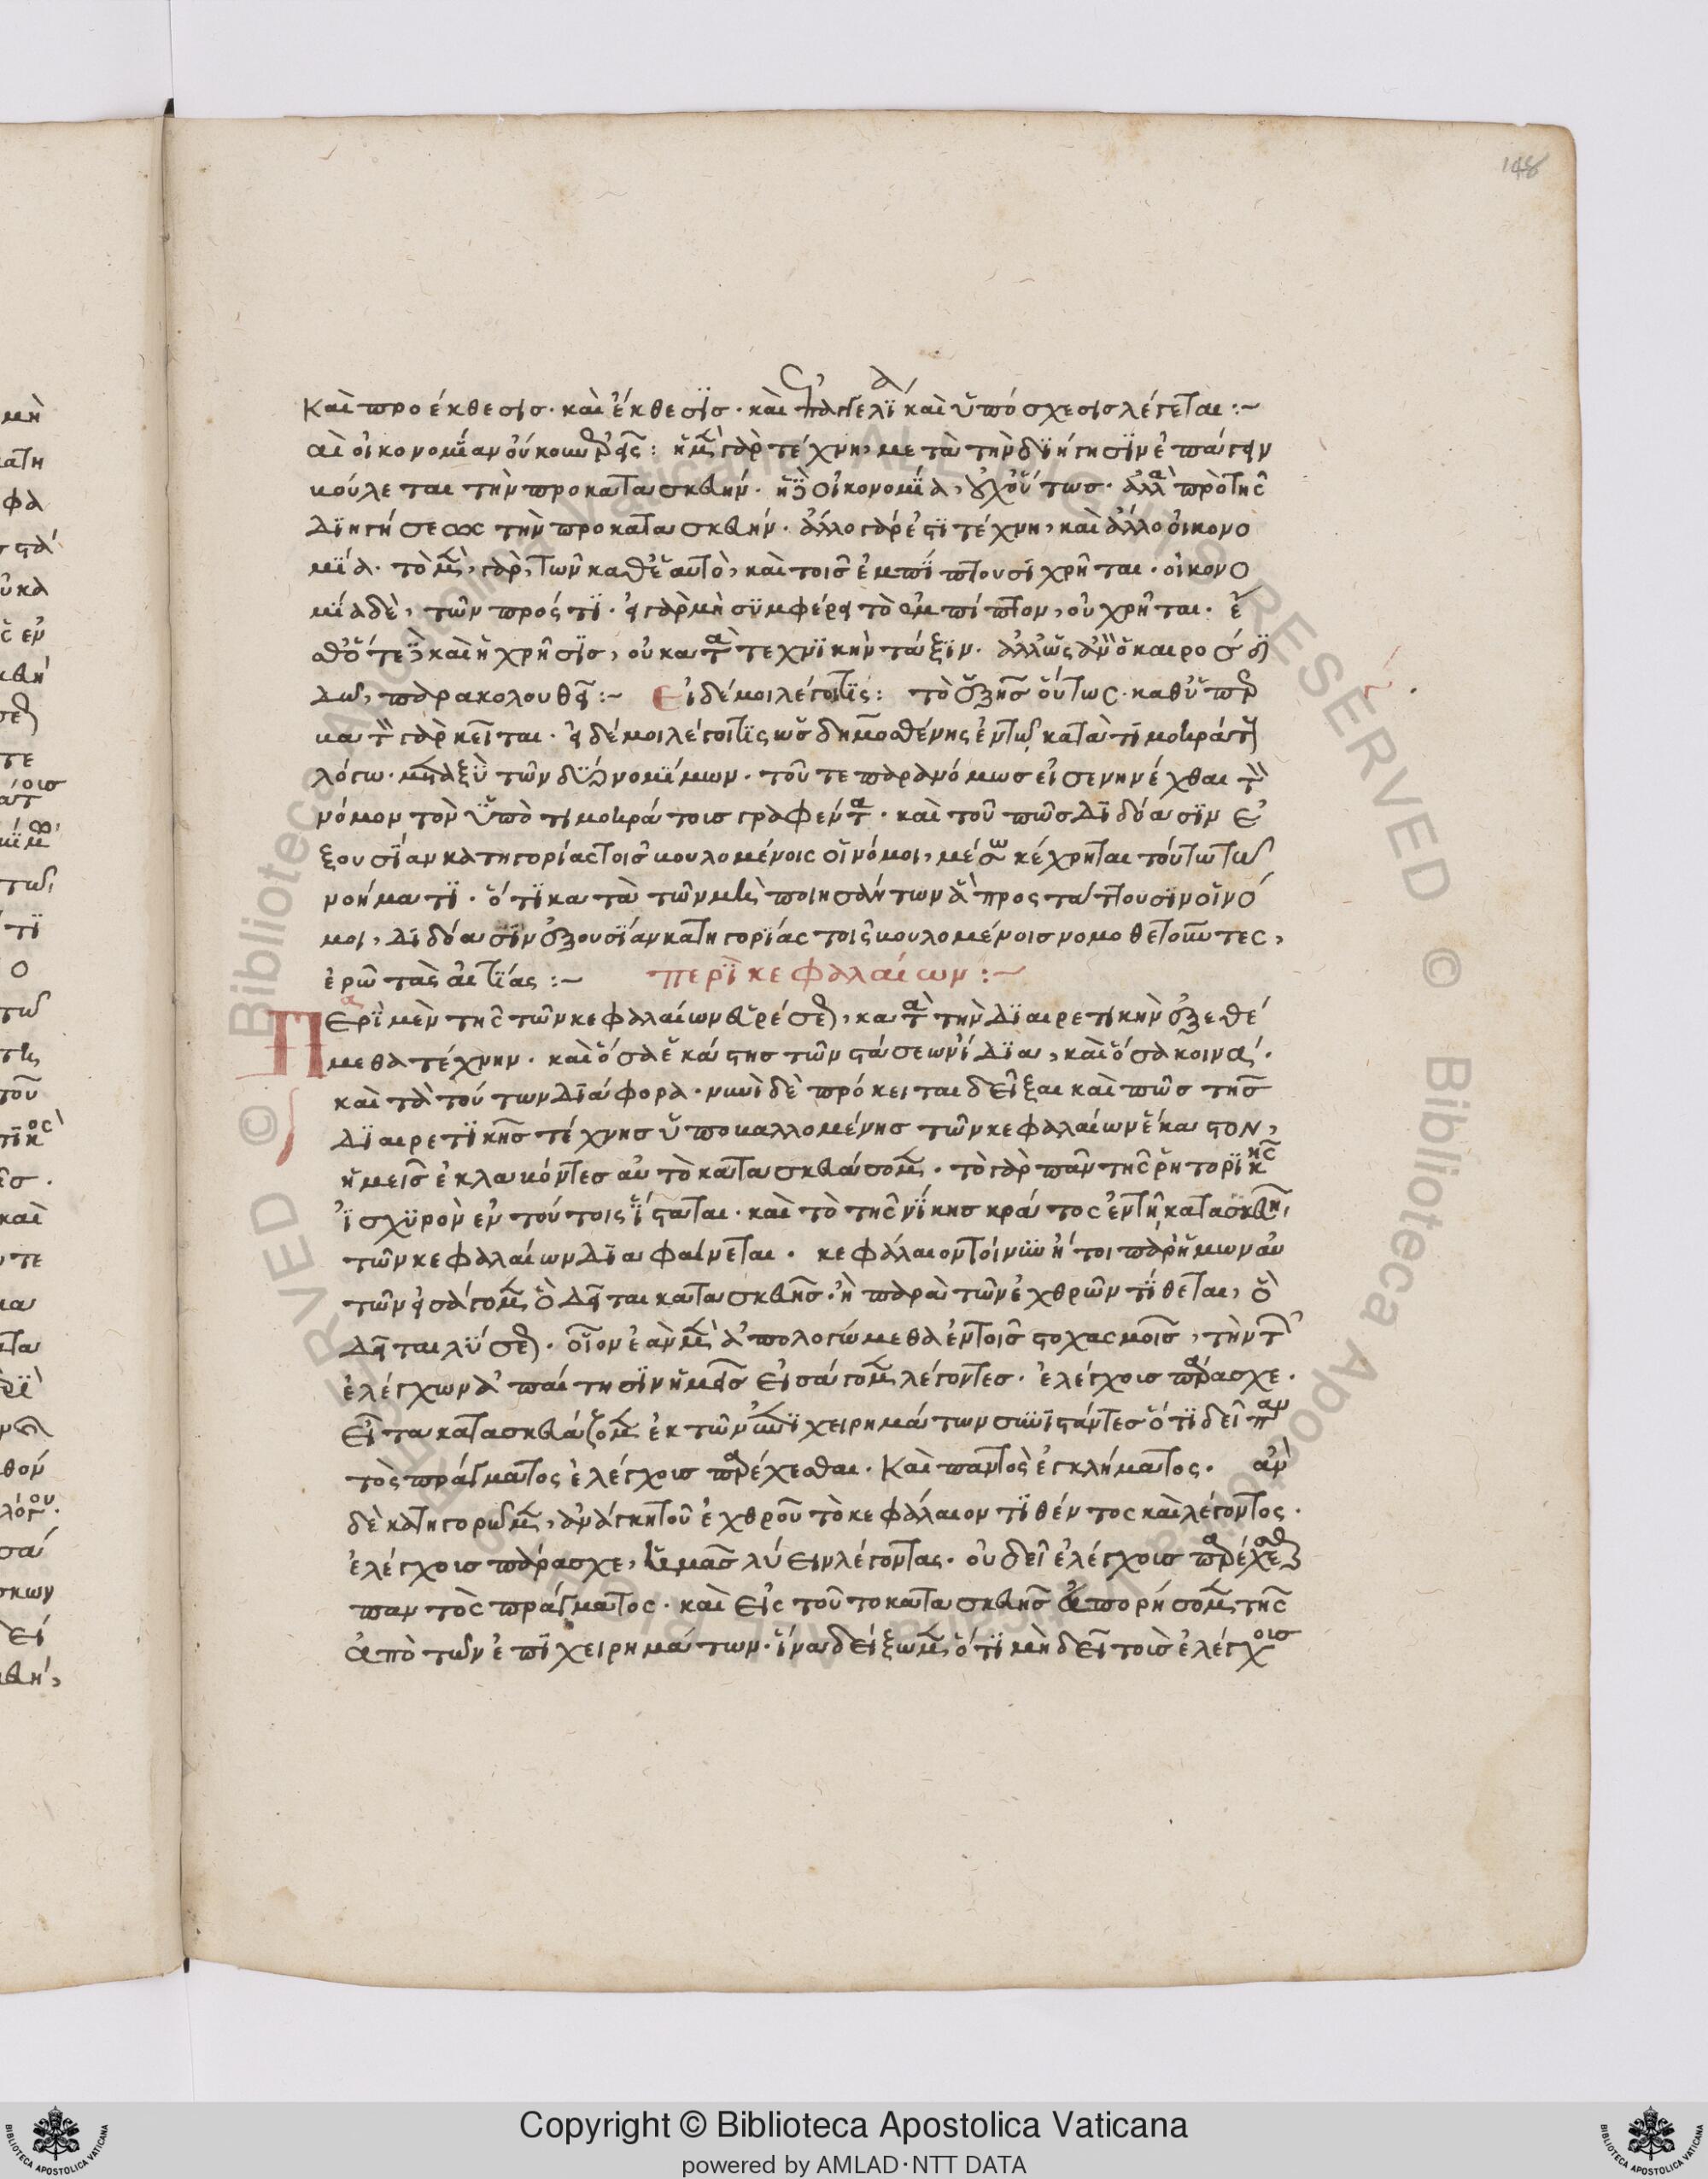 148
καὶ προέκθεσις· καὶ ἔκθεσϊς· καὶ ἐπαγγελία καὶ ὑπόσχεσις λέγεται:~
οἰκονομΐαν οὐκ : ἡ μὲν γὰρ τέχνη, μετὰ τὴν δϊήγησϊν ἐπάγειν
βούλεται τὴν προκατασκευήν· ἡ δὲ οἰκονομΐα, οὐχ οὕτως· ἀλλὰ πρὸ τῆς
Δϊηγήσεως τὴν προκατασκευήν· ἄλλο γάρ ἐστϊ τέχνη, καὶ ἄλλο οἰκονο
μΐα· τὸ μὲν, γὰρ, τῶν καθ' ἑαυτὸ, καὶ τοῖς ἐμπΐπτουσϊ χρῆται· οἰκονο
μΐα δὲ, τῶν πρός τϊ· εἰ γὰρ μὴ σϋμφέρει τὸ ἐμπίπτον, οὐ χρῆται· ἐ
σθ' ὅτε δὲ καὶ ἡ χρῆσϊς, οὐ κατὰ τεχνϊκὴν τάξϊν· ἀλλ' ὡς ἂν ὁ καιρὸς
δῷ, παρακολουθεῖ:~ Εἰ δέ μοι λέγοι τϊς: τὸ ἑξῆς οὕτως· καθ' ὑπερ
βατὸν γὰρ κεῖται· εἰ δέ μοι λέγοι τϊς ὡς δημοσθένης ἐν τῷ κατὰ τϊμοκράτους
λόγω· μεταξὺ τῶν δύο νομΐμων· τοῦ τε παρανόμως εἰσενηνέχθαι τὸν
νόμον τὸν ὑπὸ τιμοκράτους γραφέντα· καὶ τοῦ πῶς Δϊδόασϊν ἐ
ξουσΐαν κατηγορίας τοῖς βουλομένοις οἱ νόμοι, μέσω κέχρηται τούτω τῷ
νοήματϊ· ὅτϊ κατὰ τῶν μὴ ποιησάντων ἃ προστάττουσϊν οἱ νό
μοι, Δϊδόασϊν ἐξουσϊαν κατηγορΐας τοῖς βουλομένοις νομοθετοῦντες,
ἐρῶ τὰς αἰτΐας:~ περὶ κεφαλαίων:~
Περὶ μὲν τῆς τῶν κεφαλαίων εὑρέσεως, κατὰ τὴν Δϊαιρετϊκὴν ἐξεθέ
μεθα τέχνην· καὶ ὅσα ἑκάστης τῶν στάσεων ἴδϊα, καὶ ὅσα κοινά·
καὶ τὰ τούτων Δϊάφορα· νυνὶ δὲ πρόκειται δεῖξαι καὶ πῶς τῆς
Δϊαιρετϊκῆς τέχνης ὑποβαλλομένης τῶν κεφαλαίων ἕκαστον,
ἡμεῖς ἐκλαβόντες αὐτὸ κατασκευάσομεν· τὸ γὰρ πᾶν τῆς ῥητορϊκῆς
ἰσχϋρὸν ἐν τούτοις ἵσταται· καὶ τὸ τῆς νΐκης κράτος ἐν τῇ κατασκευῇ
τῶν κεφαλαίων Δϊαφαίνεται· κεφάλαιον τοίνυν ἤτοι παρ' ἡμῶν αὐ
τῶν εἰσάγομεν ὃ Δεῖται κατασκευῆς· ἢ παρὰ τῶν ἐχθρῶν τΐθεται, ὃ
Δεῖται λύσεως· οἷον ἐὰν μὲν ἀπολογώμεθα ἐν τοῖς στοχασμοῖς, τὴν τῶν
ἐλέγχων ἀπαίτησϊν ἡμεῖς εἰσάγομεν λέγοντες· ἐλέγχους παράσχε·
εἶτα κατασκευάζομεν ἐκ τῶν ἐπϊχειρημάτων συνϊστάντες ὅτϊ δεῖ παν
τὸς πράγματος ἐλέγχους παρέχεσθαι· Καὶ παντὸς ἐγκλήματος· ἂν
δὲ κατηγορῶμεν, ἀνάγκη τοῦ ἐχθροῦ τὸ κεφάλαιον τϊθέντος καὶ λέγοντος·
ἐλέγχους παράσχε, ἡμᾶς λύειν λέγοντας· οὐ δεῖ ἐλέγχους παρέχεσθαι
παντὸς πράγματος· καὶ εἰς τοῦτο κατασκευῆς ἀπορήσομεν τῆς
ἀπὸ τῶν ἐπϊχειρημάτων· ἵνα δείξωμεν ὅτϊ μὴ δεῖ τοῖς ἐλέγχοις
Copyright © Biblioteca Apostolica Vaticana
powered by AMLAD·NTT DATA